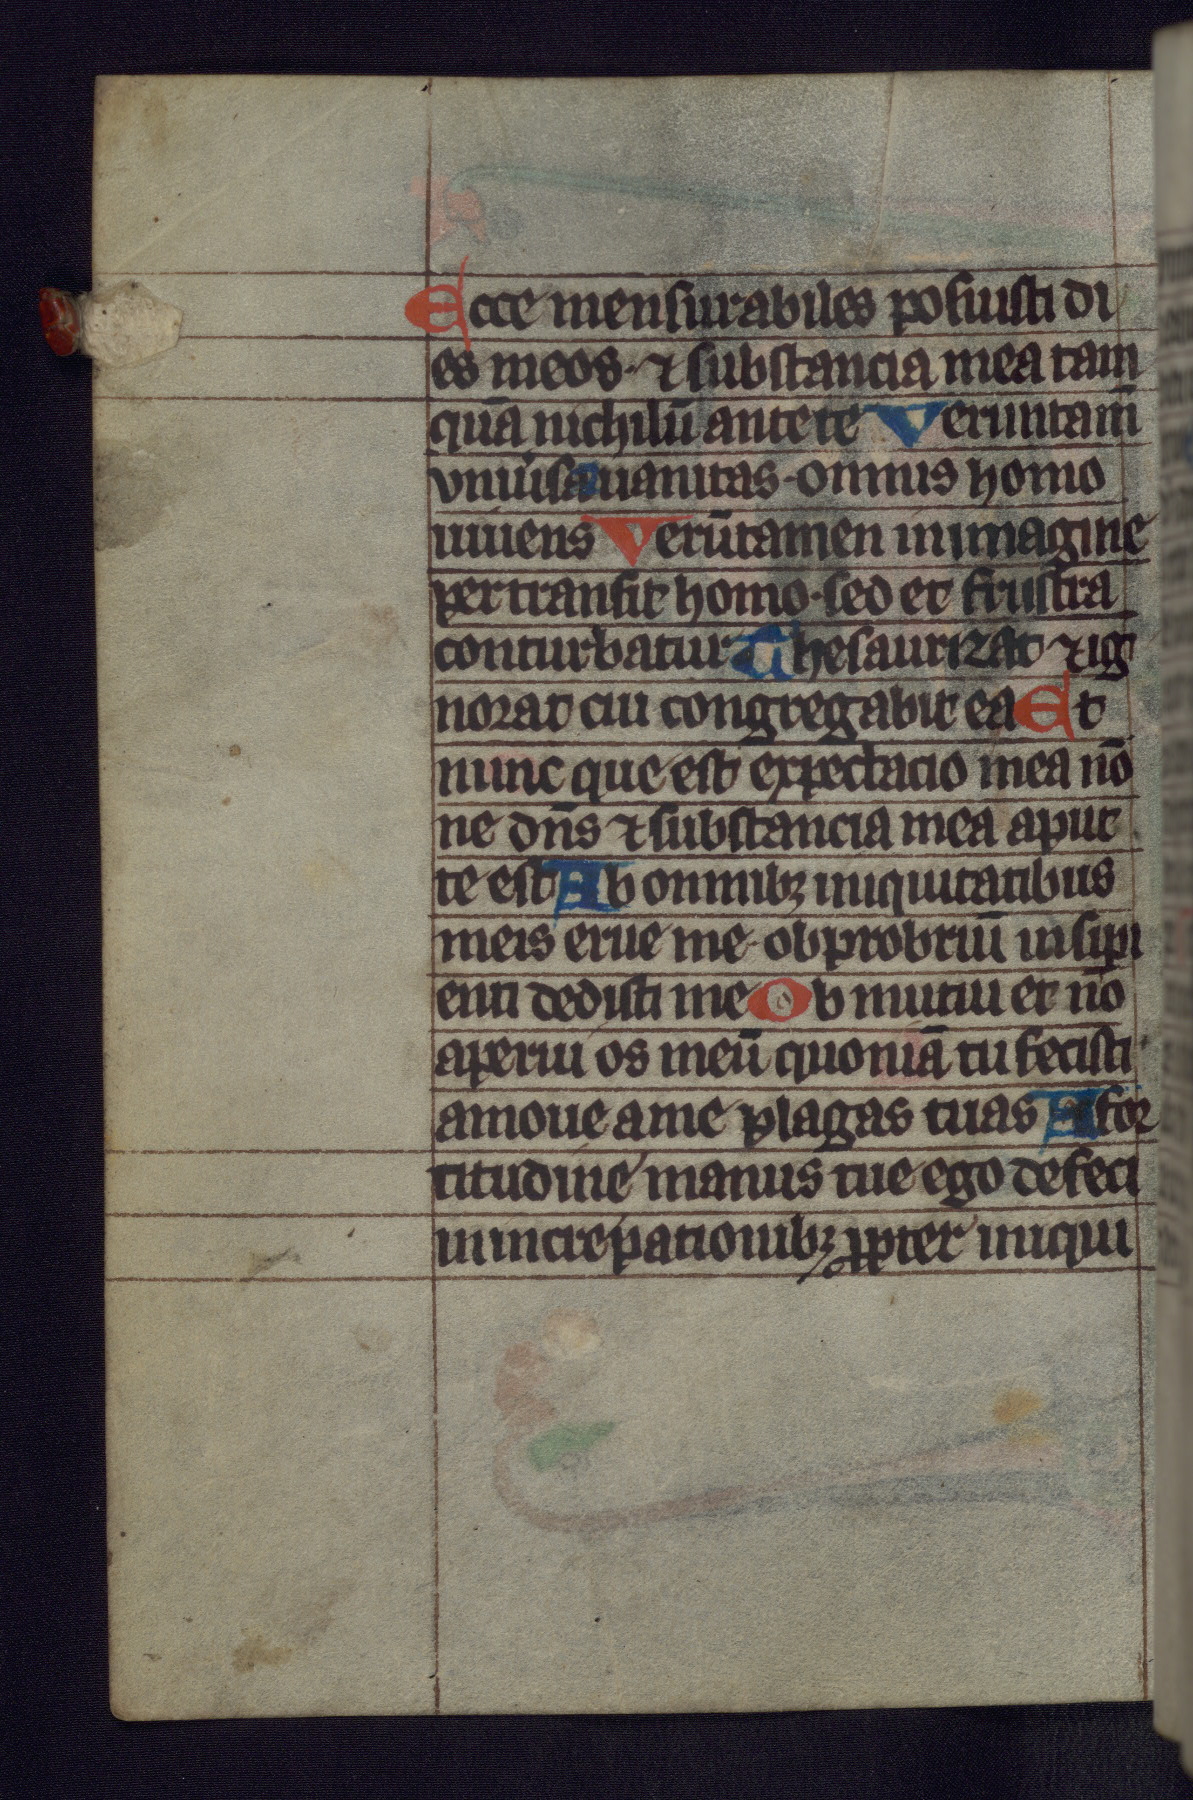 Ecce mensurabiles posuisti di
es meos · ⁊ substancia mea tam
quā nichilū ante te Veruntam̄
vniu̓sa uanitas · omnis homo
uiuens Verūtamen in imagine
pertransit homo · sed et frustra
conturbatur Thesaurizat ⁊ ig
norat cui congregabit ea Et
nunc que est expectacio mea nō
ne dn̄s ⁊ substancia mea aput
te est Ab omnibꝫ iniquitatibus
meis erue me · obprobriū insipi
enti dedisti me Obmutui et nō
aperui os meū quoniā tu fecisti
amoue a me plagas tuas A for
titudine manus tue ego defeci
in increpationibꝫ ꝓpter iniqui